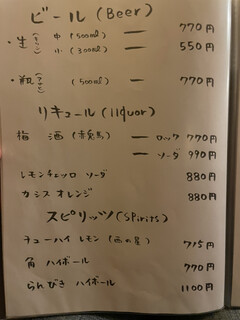 ビール (Beer)
・生 (キリン) 中 (500ml) ー 770円
小 (300ml) ー 550円
・瓶 (500ml) ー 770円
リキュール (liquor)
梅 酒 ー ロック 770円
ー ソーダ 990円
レモンチェッロ ソーダ 880円
カシス オレンジ 880円
スピリッツ (Spirits)
チューハイ レモン 715円
角 ハイボール 770円
らんびき ハイボール 1100円